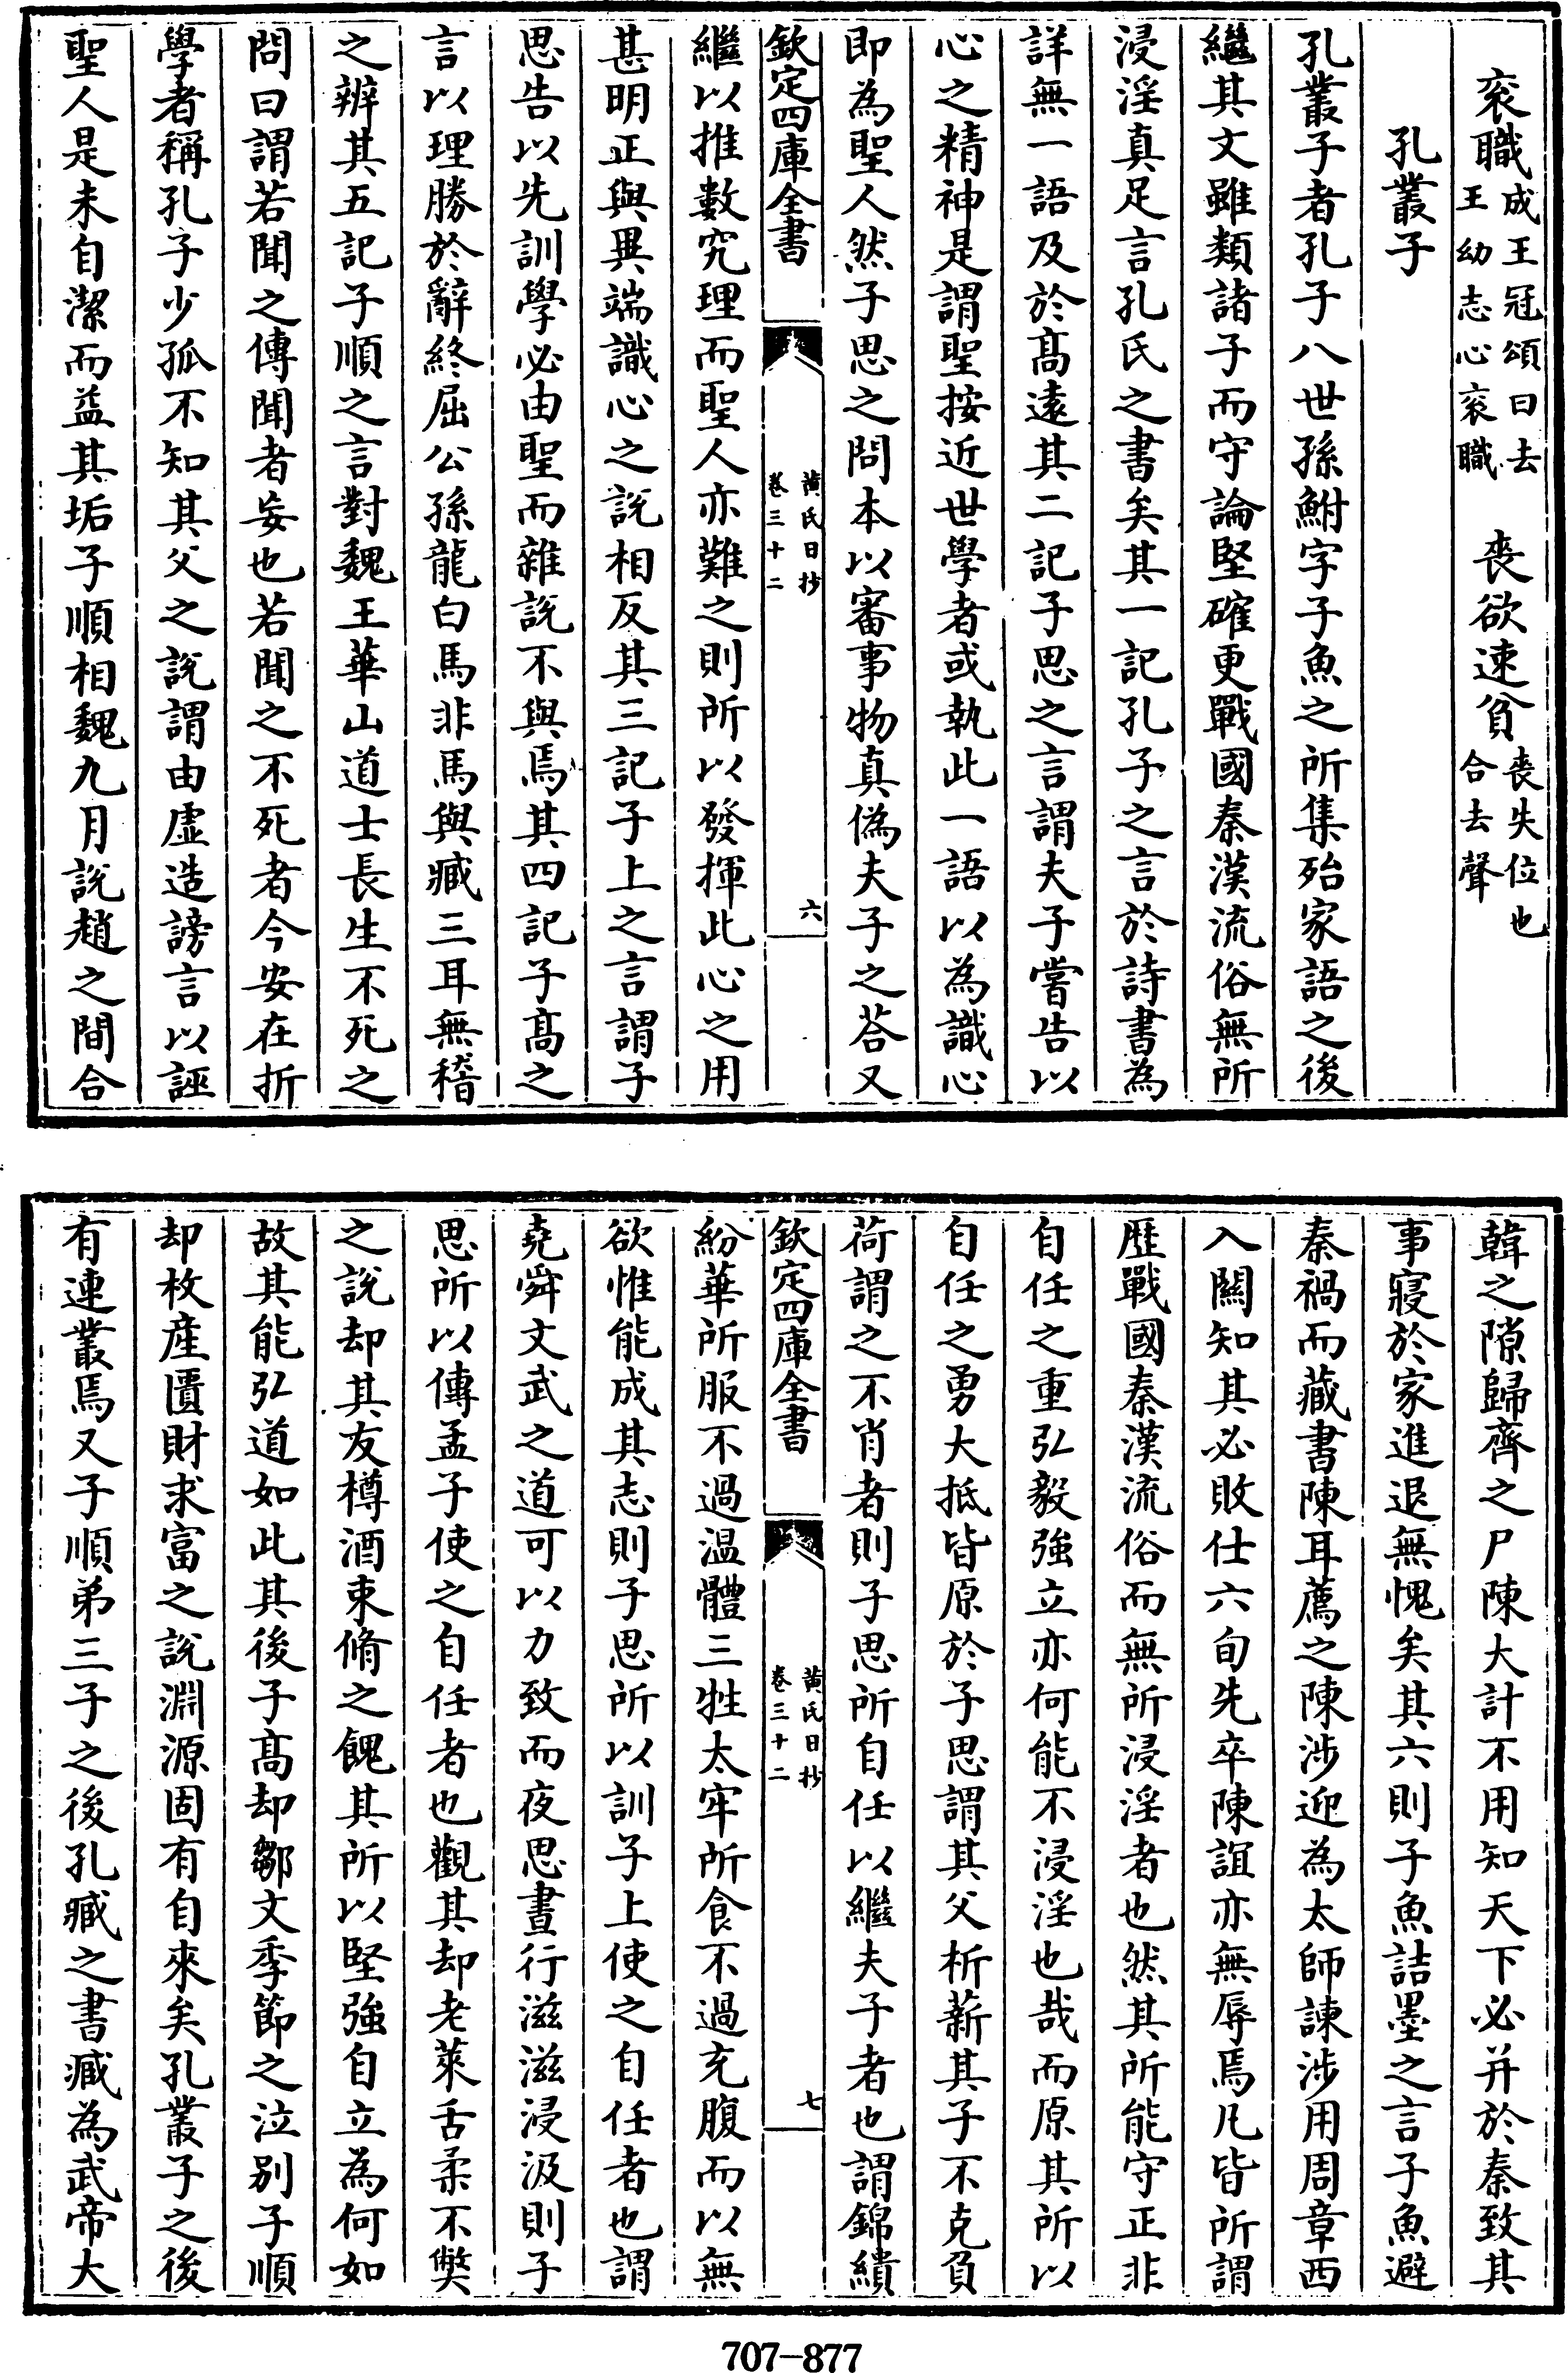 衮職成王冠頌曰去王幼志心衮職　喪欲速貧喪失位也合去聲
孔叢子
孔叢子者孔子八世孫鮒字子魚之所集殆家語之後
繼其文雖類諸子而守論堅確更戰國秦漢流俗無所
浸淫真足言孔氏之書矣其一記孔子之言於詩書為
詳無一語及於髙遠其二記子思之言謂夫子嘗告以
心之精神是謂聖按近世學者或執此一語以為識心
即為聖人然子思之問本以審事物真偽夫子之荅又
欽定四庫全書
黄氏日抄
卷三十二
六
繼以推數究理而聖人亦難之則所以發揮此心之用
甚明正與異端識心之説相反其三記子上之言謂子
思告以先訓學必由聖而雜説不與焉其四記子髙之
言以理勝於辭終屈公孫龍白馬非馬與臧三耳無稽
之辨其五記子順之言對魏王華山道士長生不死之
問曰謂若聞之傳聞者妄也若聞之不死者今安在折
學者稱孔子少孤不知其父之説謂由虚造謗言以誣
聖人是未自潔而益其垢子順相魏九月說趙之間合
韓之隙歸齊之尸陳大計不用知天下必并於秦致其
事寢於家進退無愧矣其六則子魚詰墨之言子魚避
秦禍而藏書陳耳薦之陳涉迎為太師諫涉用周章西
入關知其必敗仕六旬先卒陳誼亦無辱焉凡皆所謂
歷戰國秦漢流俗而無所浸淫者也然其所能守正非
自任之重弘毅強立亦何能不浸淫也哉而原其所以
自任之勇大抵皆原於子思謂其父析薪其子不克負
荷謂之不肖者則子思所自任以繼夫子者也謂錦繢
欽定四庫全書
黄氏日抄
卷三十二
七
紛華所服不過温體三牲太牢所食不過充腹而以無
欲惟能成其志則子思所以訓子上使之自任者也謂
堯舜文武之道可以力致而夜思晝行滋滋浸汲則子
思所以傳孟子使之自任者也觀其却老萊舌柔不獘
之説却其友樽酒束脩之餽其所以堅強自立為何如
故其能弘道如此其後子髙却鄒文季節之泣别子順
却枚産匱財求富之説淵源固有自來矣孔叢子之後
有連叢焉又子順弟三子之後孔臧之書臧為武帝大
707-877